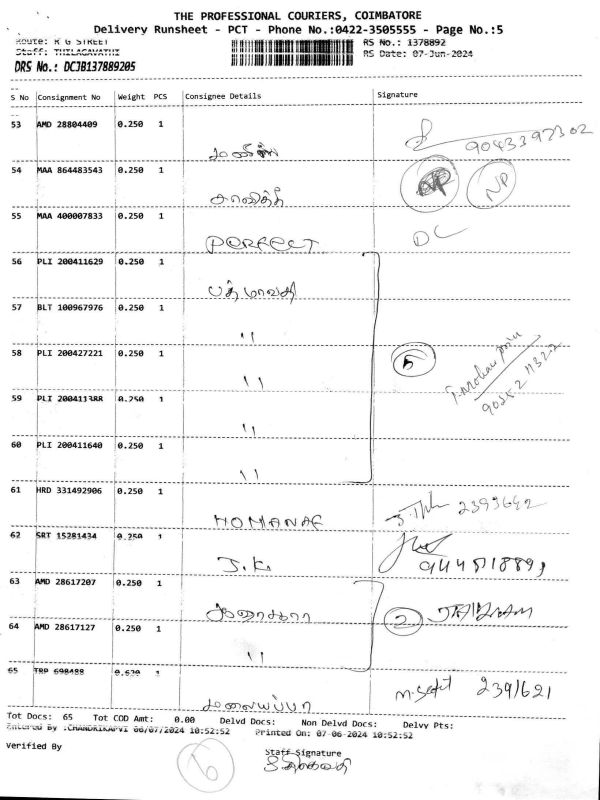 THE PROFESSIONAL COURIERS, COIMBATORE
Delivery Runsheet - PCT - Phone No.:0422-3505555 - Page No.:5
Route: R G STREET RS No.: 1378892
Staff: THILAGAVATHI RS Date: 07-Jun-2024
DRS No.: DCJB137889205
S No Consignment No Weight PCS Consignee Details Signature
53 AMD 28804409 0.250 1
9043397302
54 MAA 864483543 0.250 1 NP NP
சாவித்ரி
55 MAA 400007833 0.250 1
PERFECT DC
56 PLI 200411629 0.250 1
பத்மாவதி
57 BLT 100967976 0.250 1
"
58 PLI 200427221 0.250 1 5
"
59 PLI 200411388 0.250 1
"
60 PLI 200411640 0.250 1
"
61 HRD 331492906 0.250 1 2393642
HOMANAF
62 SRT 15281434 0.250 1
J.K.
63 AMD 28617207 0.250 1
2 JAIRAM
64 AMD 28617127 0.250 1
"
65 TRP 698488 0.620 1 2391621
மலையப்பா
Tot Docs: 65 Tot COD Amt: 0.00 Delvd Docs: Non Delvd Docs: Delvy Pts:
Entered By :CHANDRIKAPVI 06/07/2024 10:52:52 Printed On: 07-06-2024 10:52:52
Verified By Staff Signature
6